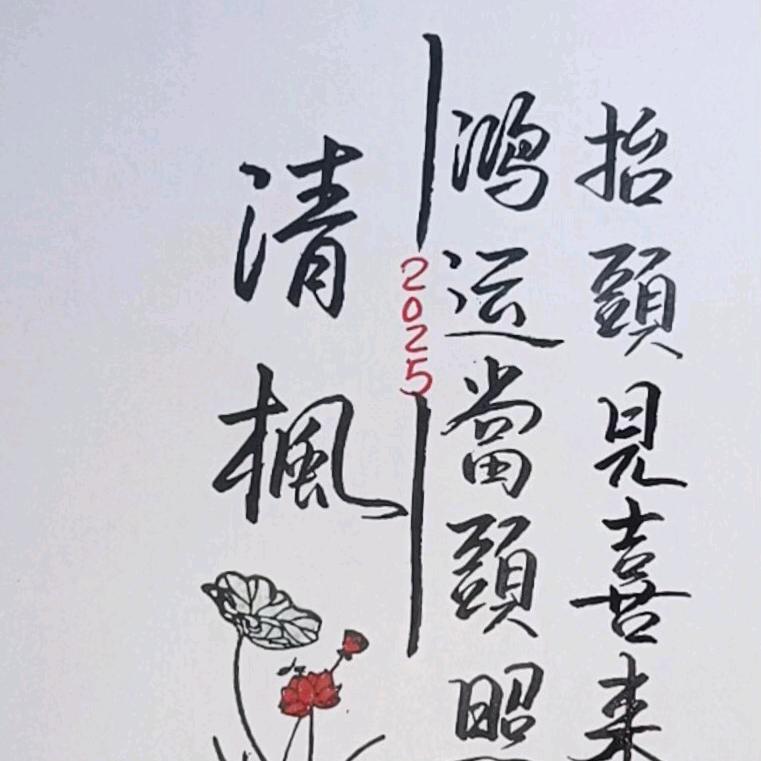 抬頭見喜来
鴻运當頭照
2025
清楓